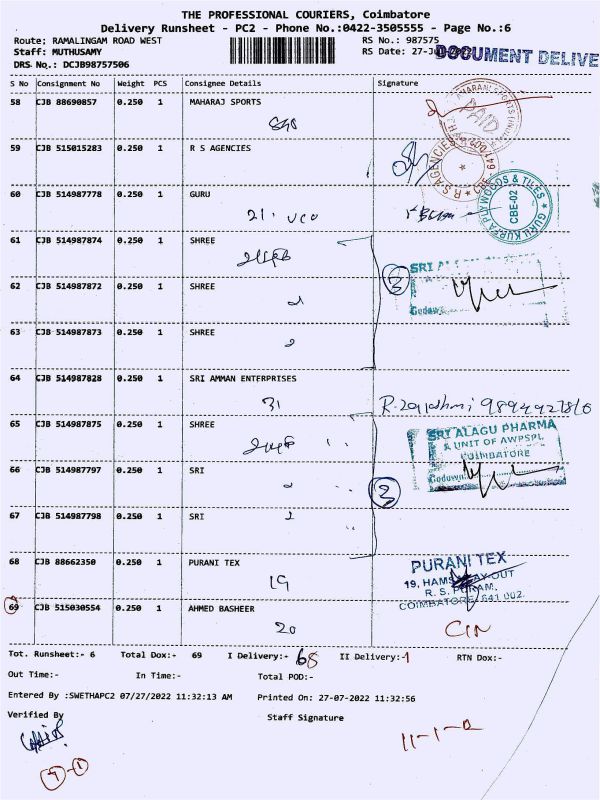 THE PROFESSIONAL COURIERS, Coimbatore
Delivery Runsheet - PC2 - Phone No.:0422-3505555 - Page No.:6
Route; RAMALINGAM ROAD WEST RS No.: 987575
Staff: MUTHUSAMY RS Date: 27-Jul-2022 DOCUMENT DELIVE
DRS No.: DCJB98757506
S No Consignment No Weight PCS Consignee Details Signature
58 CJB 88690857 0.250 1 MAHARAJ SPORTS
PAID
59 CJB 515015283 0.250 1 R S AGENCIES
R S AGENCIES
60 CJB 514987778 0.250 1 GURU
21. UCO
GURU KURPA PLYWOODS & TILES
CBE-02
61 CJB 514987874 0.250 1 SHREE
SRI
3
Godown
62 CJB 514987872 0.250 1 SHREE
63 CJB 514987873 0.250 1 SHREE
64 CJB 514987828 0.250 1 SRI AMMAN ENTERPRISES
31
65 CJB 514987875 0.250 1 SHREE
SRI ALAGU PHARMA
A UNIT OF AWPSPL
COIMBATORE
Godown
66 CJB 514987797 0.250 1 SRI
3
67 CJB 514987798 0.250 1 SRI
68 CJB 88662350 0.250 1 PURANI TEX
19
PURANI TEX
19, HAMS LAY-OUT
R. S. PURAM,
COIMBATORE-641 002.
69 CJB 515030554 0.250 1 AHMED BASHEER
20 CIN
Tot. Runsheet:- 6 Total Dox:- 69 I Delivery:- 68 II Delivery:-1 RTN Dox:-
Out Time:- In Time:- Total POD:-
Entered By :SWETHAPC2 07/27/2022 11:32:13 AM Printed On: 27-07-2022 11:32:56
Verified By Staff Signature